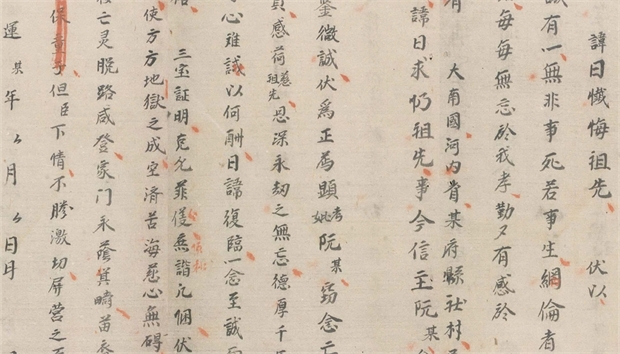 諱日懺悔祖先 伏以
有一無非事死若事生綱倫者
每每無忘於我孝勤夕有感於
有 大南國河内省某府縣社村
諱日求仍祖先事今信主阮某
鑒微誠伏為正薦顕考妣阮某窃念亡
感荷慈祖先恩深永劫之無忘德厚千
心难誠以何酬日諱復臨一念至誠而
三宝証明克允菲仪無諧凡個伏
使方方地獄之成空済苦海慈心無碍
亡灵脱路咸登家门永蔭箕疇苗
保童子但臣下情不勝激切屏营之至
運某年厶月厶日月